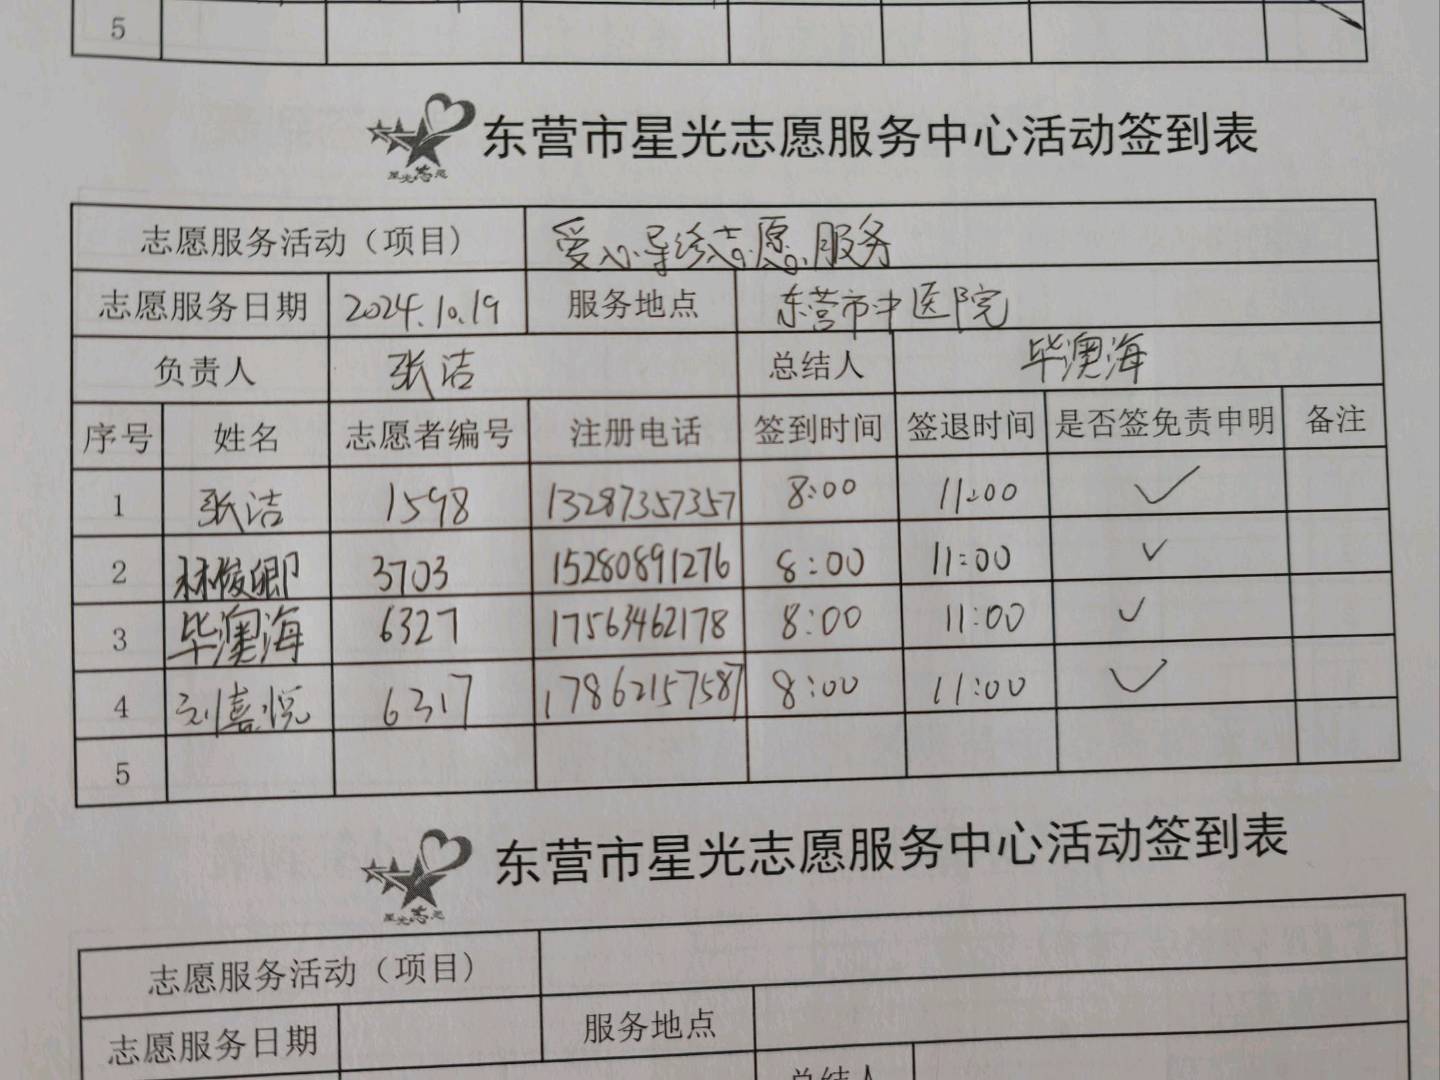 5
星光志愿
东营市星光志愿服务中心活动签到表
志愿服务活动（项目） 爱心导诊志愿服务
志愿服务日期 2024.10.19 服务地点 东营市中医院
负责人 张洁 总结人 毕澳海
序号 姓名 志愿者编号 注册电话 签到时间 签退时间 是否签免责申明 备注
1 张洁 1598 13287357357 8:00 11:00 ✓
2 林俊卿 3703 15280891276 8:00 11:00 ✓
3 毕澳海 6327 17563462178 8:00 11:00 ✓
4 刘嘉悦 6317 17862157587 8:00 11:00 ✓
5
星光志愿
东营市星光志愿服务中心活动签到表
志愿服务活动（项目）
志愿服务日期 服务地点
总结人